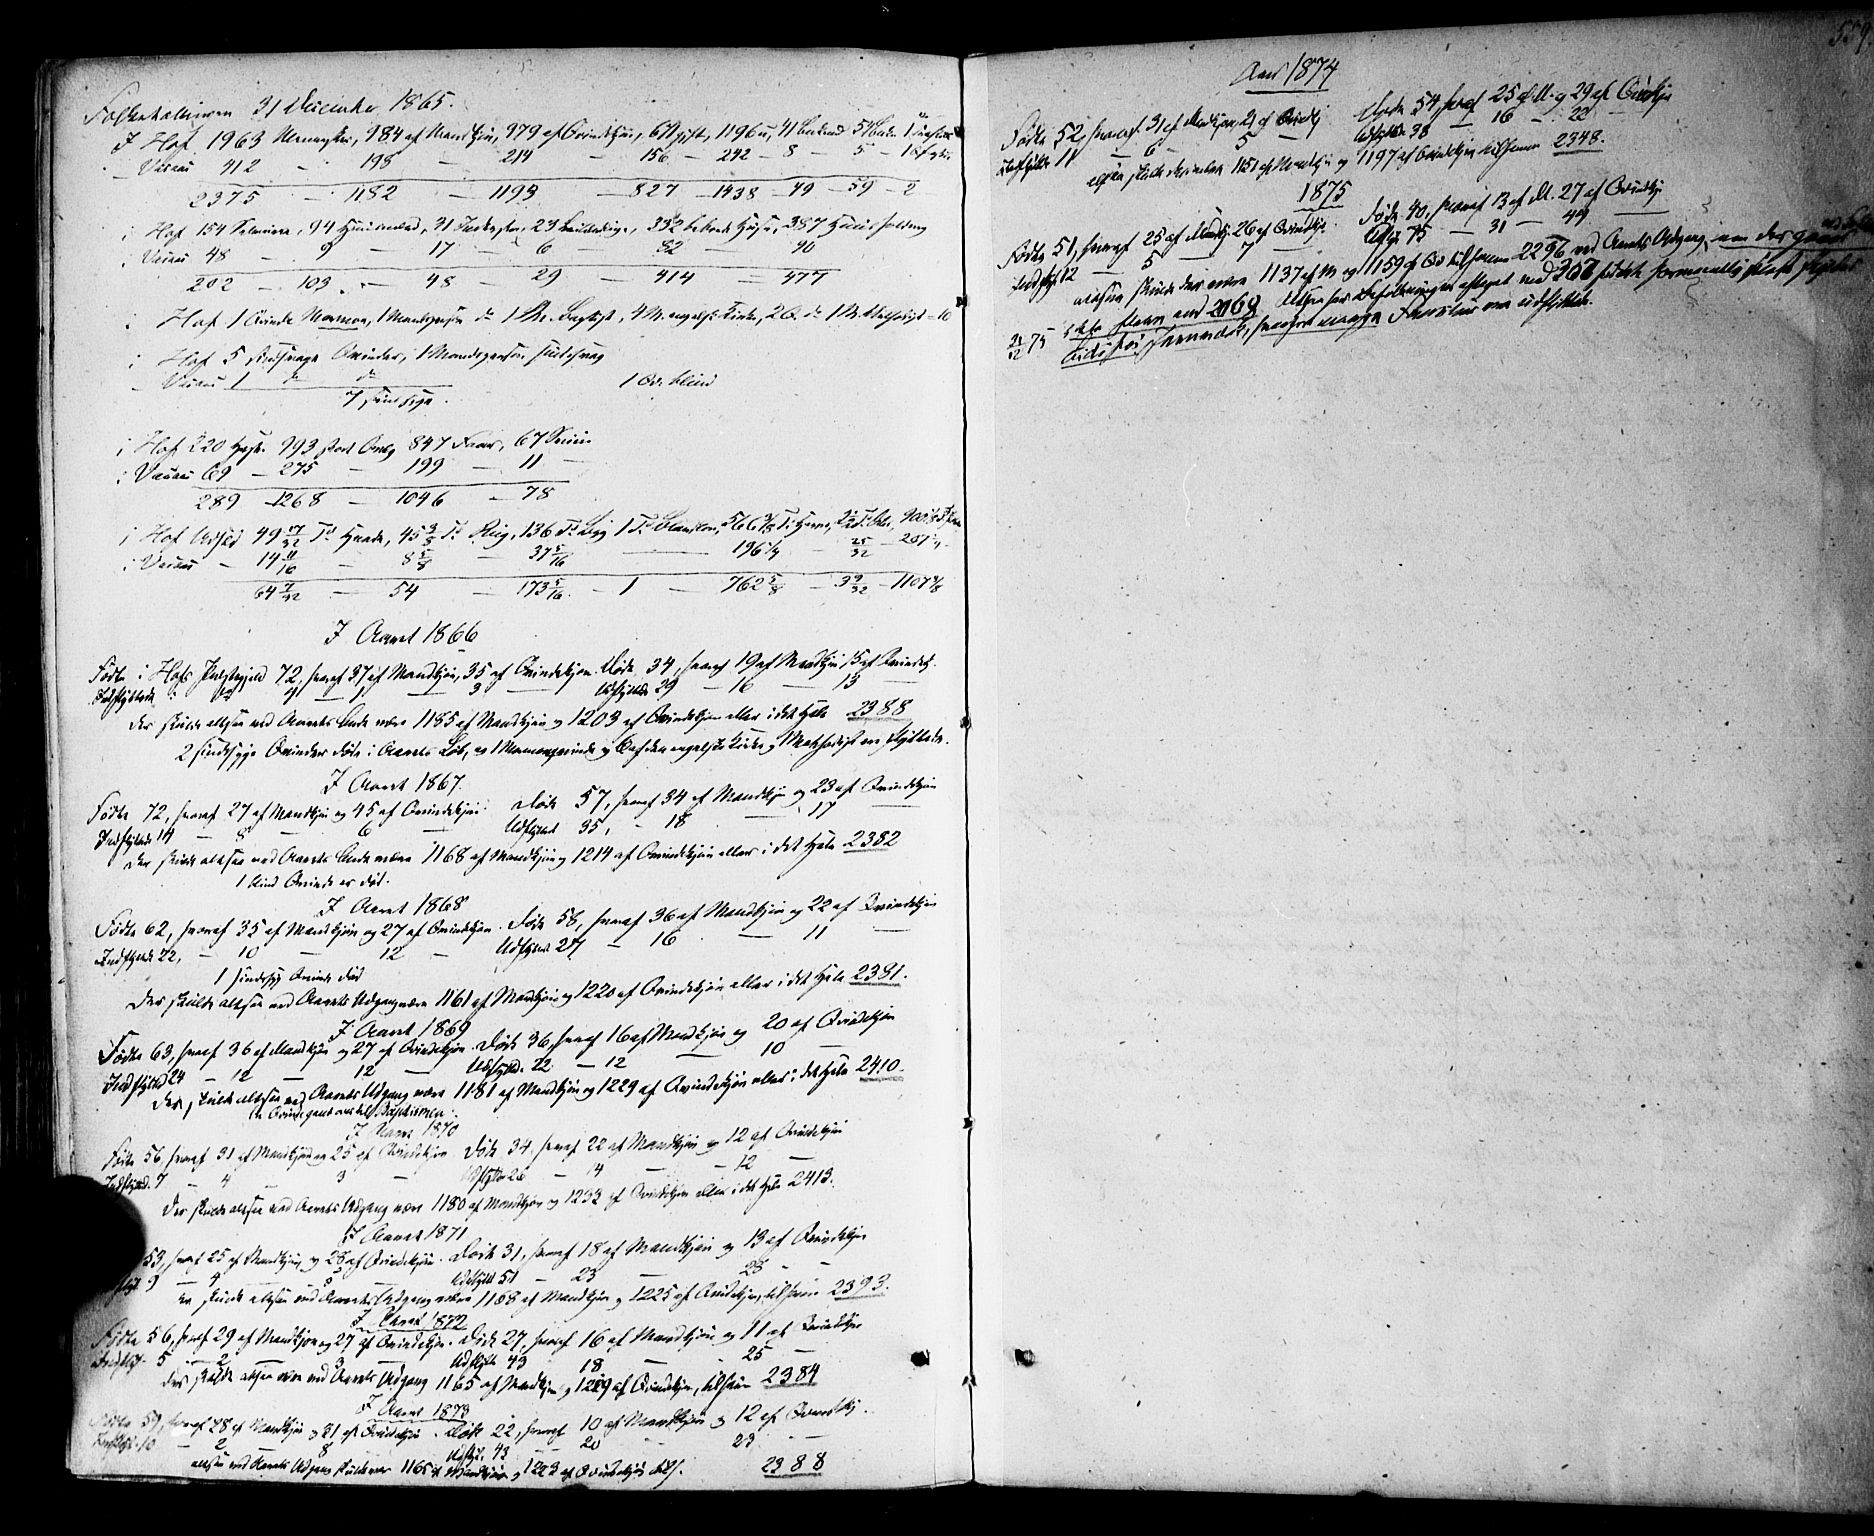 Folketællingen 31 December 1865.
I Hof 1963 Mennesker, 984 af Mandkjøn, 979 af Qvindekjøn, 671 gift, 1196 u, 41 Enkemd 54 Enker 1
- Vaaler 412 - 198 - 214 - 156 - 242 - 8 - 5 - 1
2375 - 1182 - 1193 - 827 - 1438 - 49 - 59 - 2
i Hof 154 Selveiere, 94 Huusmænd, 31 Inderster, 23 332 beboede Huse, 387 Huusholdning
i Vaaler 48 - 9 - 17 - 6 82 - 90
202 - 103 - 48 - 29 - 414 - 477
i Hof 1 Qvinde Mormon, 1 Mandsperson do 1 M. Baptist, 4 M. engelsk Kirke, 2 Q. do 1 M. Methodist = 10
i Hof 5 sindssvage Qvinder, 1 Mandsperson sindssvag
- Vaaler 1 do do 1 Qv. blind
7 sindssyge.
i Hof 220 Heste, 993 stort Qvæg 847 Faar, 67 Sviin
i Vaaler 69 - 275 - 199 - 11
289 - 1268 - 1046 - 78
i Hof Udsæd 49 17/32 Td Hvede, 45 3/8 Td Rug, 136 Td Byg 1 Td Blandkorn, 566 3/8 Td Havre,
i Vaaler - 14 11/16 - 8 5/8 - 37 5/16 - 196 1/4 - 25/32 -
64 7/32 - 54 - 173 5/16 - 1 - 762 5/8 - 3 9/32 - 1107
I Aaret 1866
Fødte i Hofs Præstegjeld 72, hvoraf 37 af Mandkjøn, 35 af Qvindekjøn. Døde 34, hvoraf 19 af Mandkjøn 15 af Qvindekj.
Indflyttede Udflyttede 29 - 16 - 13
Der skulde altsaa ved Aarets Ende være 1185 af Mandkjøn og 1203 af Qvindekjøn eller i det Hele 2388
2 sindssyge Qvinder døde i Aarets Løb, og 1 Mormonqvinde og 6 af den engelske Kirke og 1 Methodist ere flyttede.
I Aaret 1867.
Fødte 72, hvoraf 27 af Mandkjøn og 45 af Qvindekjøn. Døde 57, hvoraf 34 af Mandkjøn og 23 af Qvindekjøn
Indflyttede 14 - 8 - 6 - Udflyttede 35, - 18 - 17
Der skulde altsaa ved Aarets Ende være 1168 af Mandkjøn og 1214 af Qvindekjøn eller i det Hele 2382
1 blind Qvinde er død.
I Aaret 1868
Fødte 62, hvoraf 35 af Mandkjøn og 27 af Qvindekjøn. Døde 58, hvoraf 36 af Mandkjøn og 22 af Qvindekjøn
Indflyttede 22, - 10 - 12 - Udflyttede 27 - 16 - 11
1 sindssyg Qvinde død
Der skulde altsaa ved Aarets Udgang være 1161 af Mandkjøn og 1220 af Qvindekjøn eller i det Hele 2381.
I Aaret 1869
Fødte 63, hvoraf 36 af Mandkjøn og 27 af Qvindekjøn. Døde 36, hvoraf 16 af Mandkjøn og 20 af Qvindekjøn
Indflyttede 24 - 12 - 12 - Udflyttede 22 - 12 - 10 -
Der skulde altsaa ved Aarets Udgang være 1181 af Mandkjøn og 1229 af Qvindekjøn eller i det Hele 2410.
En Qvinde gaaet over til Baptismen.
I Aaret 1870
Fødte 56, hvoraf 31 af Mandkjøn og 25 af Qvindekjøn. Døde 34, hvoraf 22 af Mandkjøn og 12 af Qvindekjøn
Indflyttede 7 - 4 - 3 - Udflyttede 26 - 14 - 12 -
Der skulde altsaa ved Aarets Udgang være 1180 af Mandkjøn og 1233 af Qvindekjøn eller i det Hele 2413.
I Aaret 1871
53, hvoraf 25 af Mandkjøn og 28 af Qvindekjøn. Døde 31, hvoraf 18 af Mandkjøn og 13 af Qvindekjøn
9 - 4 - Udflyttede 51 - 23 - 28 -
skulde altsaa ved Aarets Udgang være 1168 af Mandkjøn og 1225 af Qvindekjøn, tilsam 2393.
I Aaret 1872
Fødte 56, hvoraf 29 af Mandkjøn og 27 af Qvindekjøn. Døde 27, hvoraf 16 af Mandkjøn og 11 af Qvindekjøn
Indflyt. 5 - 2 - 3 Udflytte 43 - 18 - 25 -
Der skulde altsaa være ved Aarets Udgang 1165 af Mandkjøn og 1219 af Qvindekjøn, tilsam 2384
I Aaret 1873
Fødte 59, hvoraf 28 af Mandkjøn og 31 af Qvindekjøn. Døde 22, hvoraf 10 af Mandkjøn og 12 af Qvindekj.
Indflyt. 10 - 2 - 8 Udflyt. 43 - 20 - 23 -
altsaa ved Aarets Udgang skulde være 1165 af Mandkjøn og 1223 af Qvindekjøn tils. 2388
554
Aar 1874
Fødte 52, hvoraf 31 af Mandkjøn 21 af Qvindekj Døde 54, hvoraf 25 af M. og 29 af Qvindekjøn
Indflyttede 11 - 6 - 5 - Udflyttede 38 - 16 - 22 -
altsaa skulde der være 1151 af Mandkjøn og 1197 af Qvindekjøn tilsammen 2348.
1875
Fødte 51, hvoraf 25 af Mandkj 26 af Qvindekjøn. Døde 40, hvoraf 13 af M. 27 af Qvindekj
Indflyt 12 - 5 - 7 - Udflyt 75 - 31 - 44 -
altsaa skulde der være 1137 af M og 1159 af Qv tilsammen 2296 ved Aarets Udgang,
31/12 75